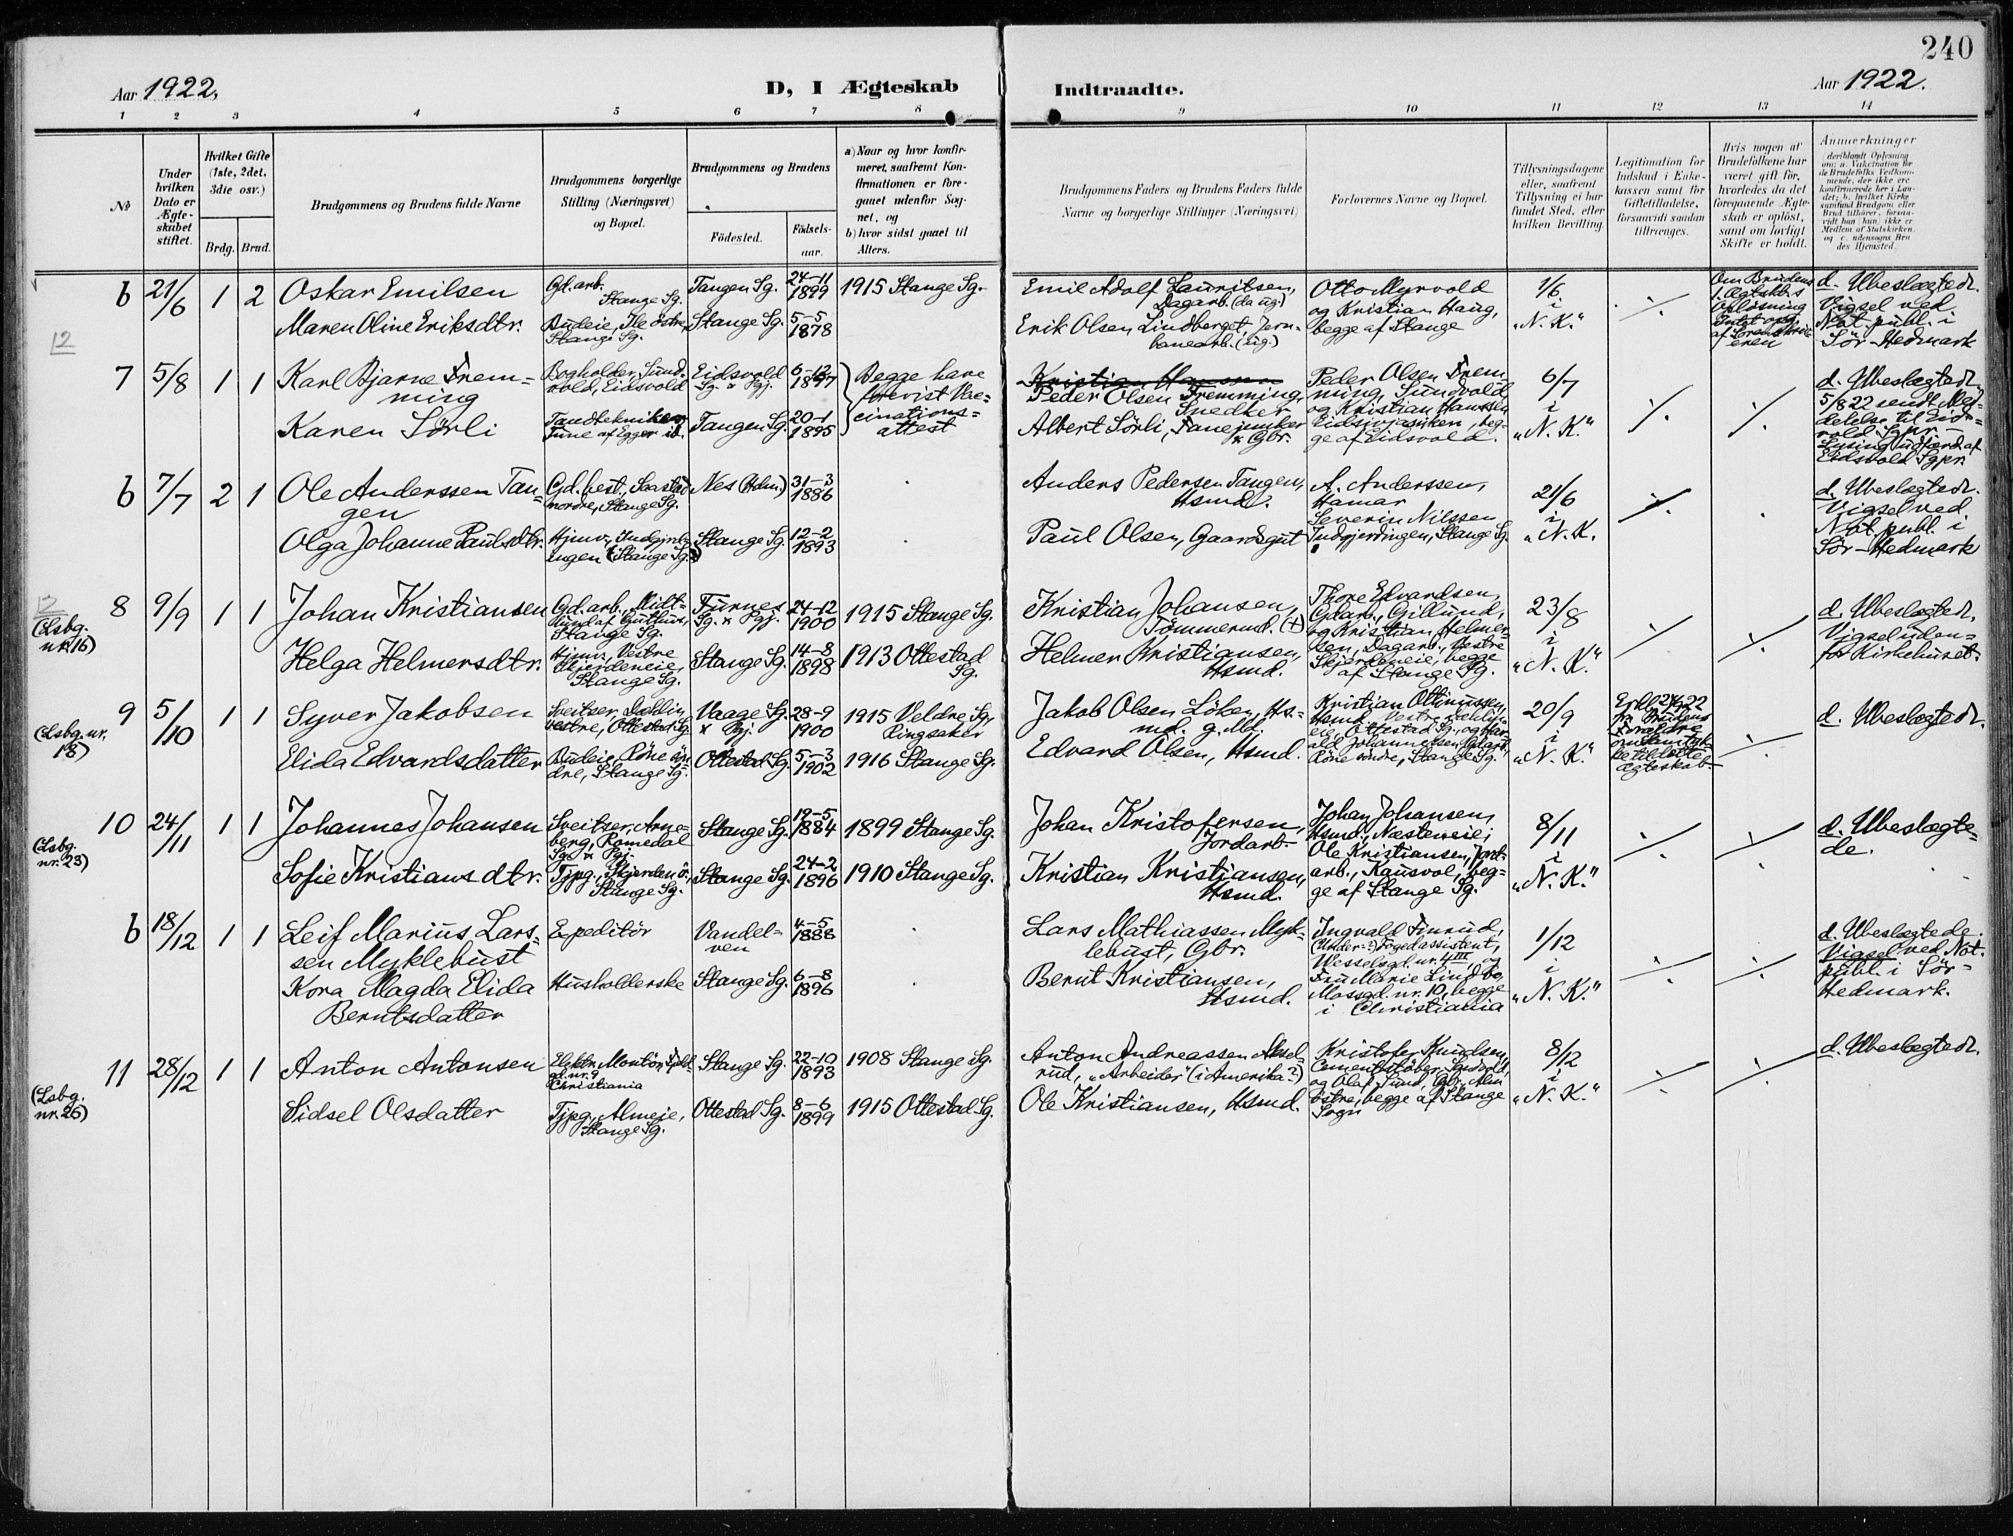 240
Aar 1922. D, I Ægteskab Indtraadte. Aar 1922.
1 2 3 4 5 6 7 8 9 10 11 12 13 14
No
Under hvilken Dato er Ægteskabet stiftet.
Hvilket Gifte (1ste, 2det, 3die osv.)
Brdg. Brud.
Brudgommens og Brudens fulde Navne
Brudgommens borgerlige Stilling (Næringsvei) og Bopæl.
Brudgommens og Brudens
Födested. Födsels-aar.
a) Naar og hvor konfirmeret, saafremt Konfirmationen er foregaaet udenfor Sognet, og
b) hvor sidst gaaet til Alters.
Brudgommens Faders og Brudens Faders fulde Navne og borgerlige Stillinger (Næringsvei)
Forlovernes Navne og Bopæl.
Tillysningsdagene eller, saafremt Tillysning ei har fundet Sted, efter hvilken Bevilling.
Legitimation for Indskud i Enkekassen samt for Giftetilladelse, forsaavidt saadan tiltrænges.
Hvis nogen af Brudefolkene har været gift før, hvorledes da det foregaaende Ægteskab er opløst, samt om lovligt Skifte er holdt.
Anmerkninger
b 21/6 1 2 Oskar Emilsen
Gd.arb. Stange Sg.
Tangen Sg. 24-11 1899 1915 Stange Sg.
Emil Adolf Lauritsen, Dagarb. (da ug.)
Otto Myrvold og Kristian Haug, begge af Stange
1/6 i "N. K."
d. Ubeslægtede. Vigsel ved Not. publ. i Sør-Hedmark
Maren Oline Eriksdtr.
Budeie, Ile østre, Stange Sg.
Stange Sg. 5-5 1878
Erik Olsen Lindberget, Jernbanearb. (ug.)
12
7 5/8 1 1 Karl Bjarne Fremming
Bogholder, Sundvold, Eidsvold
Eidsvold Sg. & Pgj. 6-12 1897
Begge have forevist Vaccinationsattest
Kristian Hanssen
Peder Olsen Fremming, Snedker
Peder Olsen Fremming, Sundvold og Kristian Hanssen begge af Eidsvold.
6/7 i "N. K."
d. Ubeslægtede. 5/8 22 sendt Meddelelse til Eidsvold Sgpr. Lysing udført af Eidsvold Sgpr.
Karen Sørli
Tangen Sg. 20-1 1895
Albert Sørli, Fanejunker & Gbr.
b 7/7 2 1 Ole Anderssen Tangen
Gd.best., Saastad nordre, Stange Sg.
Nes (Hdm.) 31-3 1886
Anders Pedersen Tangen, Hsmd.
A. Anderssen, Hamar
Severin Nilssen Indgjerdingen, Stange Sg.
21/6 i "N. K.
d. Ubeslægtede. Vigsel ved Not. publ. i Sør-Hedmark
Olga Johanne Paulsdtr.
Hjmv., Indgjerdingen (Stange Sg.)
Stange Sg. 12-2 1893
Paul Olsen, Gaardsgut
12
8 9/9 1 1 Johan Kristiansen
(Lsbg. nr. 16)
Furnes Sg. & Pgj. 24-12 1900 1915 Stange Sg.
Kristian Johansen, Tømmermd. (+)
Thore Edvardsen, Gdarb., Gillund, og Kristian Helmersen, Dagarb., Vestre Skjerdeneie, begge af Stange Sg.
23/8 i "N. K."
d. Ubeslægtede. Vigsel udenfor Kirkehuset.
Helga Helmersdtr.
Hjmv., Vestre Skjerdeneie, Stange Sg.
Stange Sg. 14-8 1898 1913 Ottestad Sg.
Helmer Kristiansen, Hsmd.
9 5/10 1 1 Syver Jakobsen
(Lsbg. nr. 18)
Sveitser, Dahlin vestre, Ottestad Sg.
Vaage Sg. & Pgj. 28-9 1900 1915 Veldre Sg., Ringsaker
Jakob Olsen Løken, Hsmd.
Kristian Ottinussen, Hsmd.
20/9 i "N. K."
d. Ubeslægtede.
Elida Edvardsdatter
Budeie, Røne søndre, Stange Sg.
Ottestad Sg. 5-3 1902 1916 Stange Sg.
Edvard Olsen, Hsmd.
10 24/11 1 1 Johannes Johansen
(Lsbg. nr. 23)
Sveitser, Arneberg, Romedal Sg. & Pgj.
Stange Sg. 19-5 1884 1899 Stange Sg.
Johan Kristofersen, Jordarb.
Johan Johansen, Hsmd., Næsteneie, Ole Kristiansen, Jordarb., Kausvol, begge af Stange Sg.
8/11 i "N. K."
d. Ubeslægtede.
Sofie Kristiansdtr.
Tjpg., Skjerden ø., Stange Sg.
Stange Sg. 24-2 1896 1910 Stange Sg.
Kristian Kristiansen, Hsmd.
b 18/12 1 1 Leif Marius Larssen Myklebust
Expeditør
Vandelven 4-5 1888
Lars Mathiassen Myklebust, Gbr.
Ingvald Finrud, (Under-?) Fogedassistent, Wesselsgd. nr. 4 III, og Fru Marie Lindbo, Mossgd. nr. 10, begge i Christiania
1/12 i "N. K."
d. Ubeslægtede. Vigsel ved Not. publ. i Sør-Hedmark.
Kora Magda Elida Berntsdatter
Husholderske
Stange Sg. 6-8 1896
Bernt Kristiansen, Hsmd.
11 28/12 1 1 Anton Antonsen
(Lsbg. nr. 26)
Elektr. Montør, Christiania
Stange Sg. 22-10 1893 1908 Stange Sg.
Anton Andreassen Akselrud, "Arbeider" (i Amerika?)
Kristofer Knudsen, Cementstøber, og Olaf Sund, Gbr., Alm østre, begge af Stange Sogn
8/12 i "N. K."
d. Ubeslægtede.
Sidsel Olsdatter
Tjpg., Almeie, Stange Sg.
Ottestad Sg. 8-6 1899 1915 Ottestad Sg.
Ole Kristiansen, Hsmd.